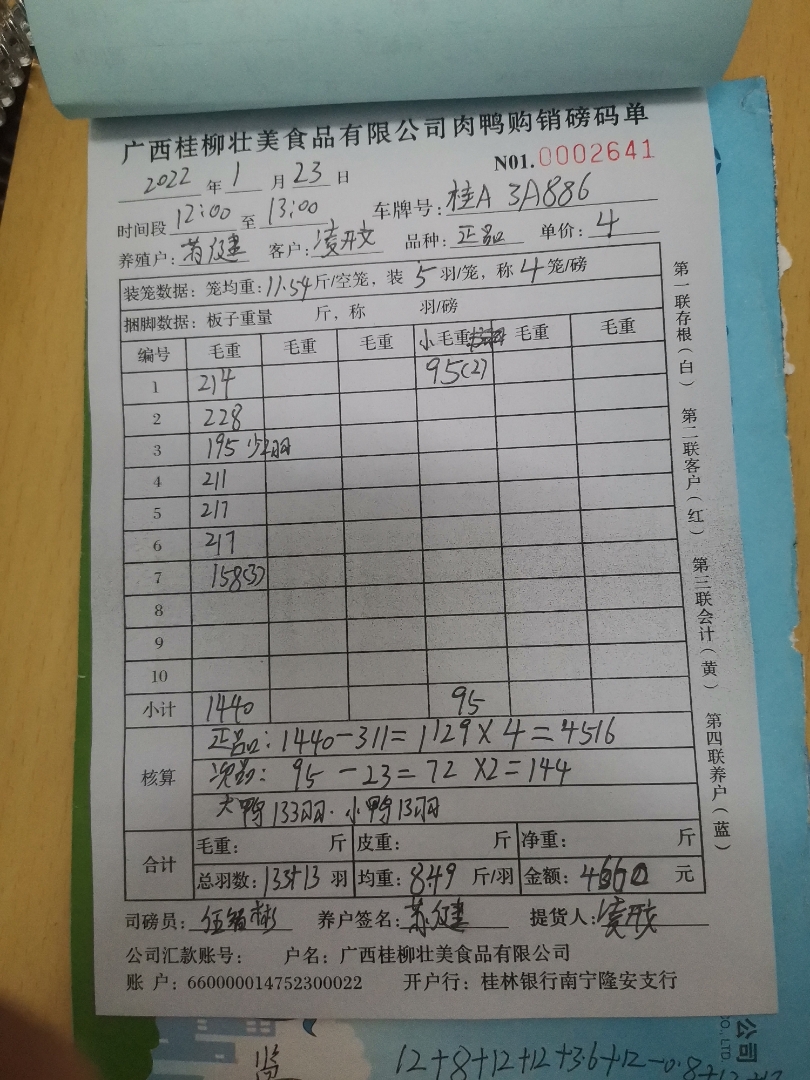 广西桂柳壮美食品有限公司肉鸭购销磅码单
N01.0002641
2022年1月23日
时间段12:00至13:00 车牌号:桂A 3A886
养殖户:苏健 客户:凌开文 品种:正品 单价:4
装笼数据:笼均重:11.54斤/空笼,装5羽/笼,称4笼/磅
捆脚数据:板子重量 斤,称 羽/磅
编号 毛重 毛重 毛重 小毛重 毛重 毛重
1 214 95(2)
2 228
3 195 少2羽
4 211
5 217
6 217
7 158(3)
8
9
10
小计 1440 95
核算 正品:1440-311=1129×4=4516
次品:95-23=72×2=144
大鸭133羽·小鸭13羽
合计 毛重: 斤 皮重: 斤 净重: 斤
总羽数:133+13羽 均重:8.49斤/羽 金额:4660元
司磅员: 养户签名:苏健 提货人:凌开文
公司汇款账号: 户名:广西桂柳壮美食品有限公司
账 户:660000014752300022 开户行:桂林银行南宁隆安支行
第一联存根(白) 第二联客户(红) 第三联会计(黄) 第四联养户(蓝)
公司
CO., LTD.
12+8+12+12+3.6+12-0.8+12